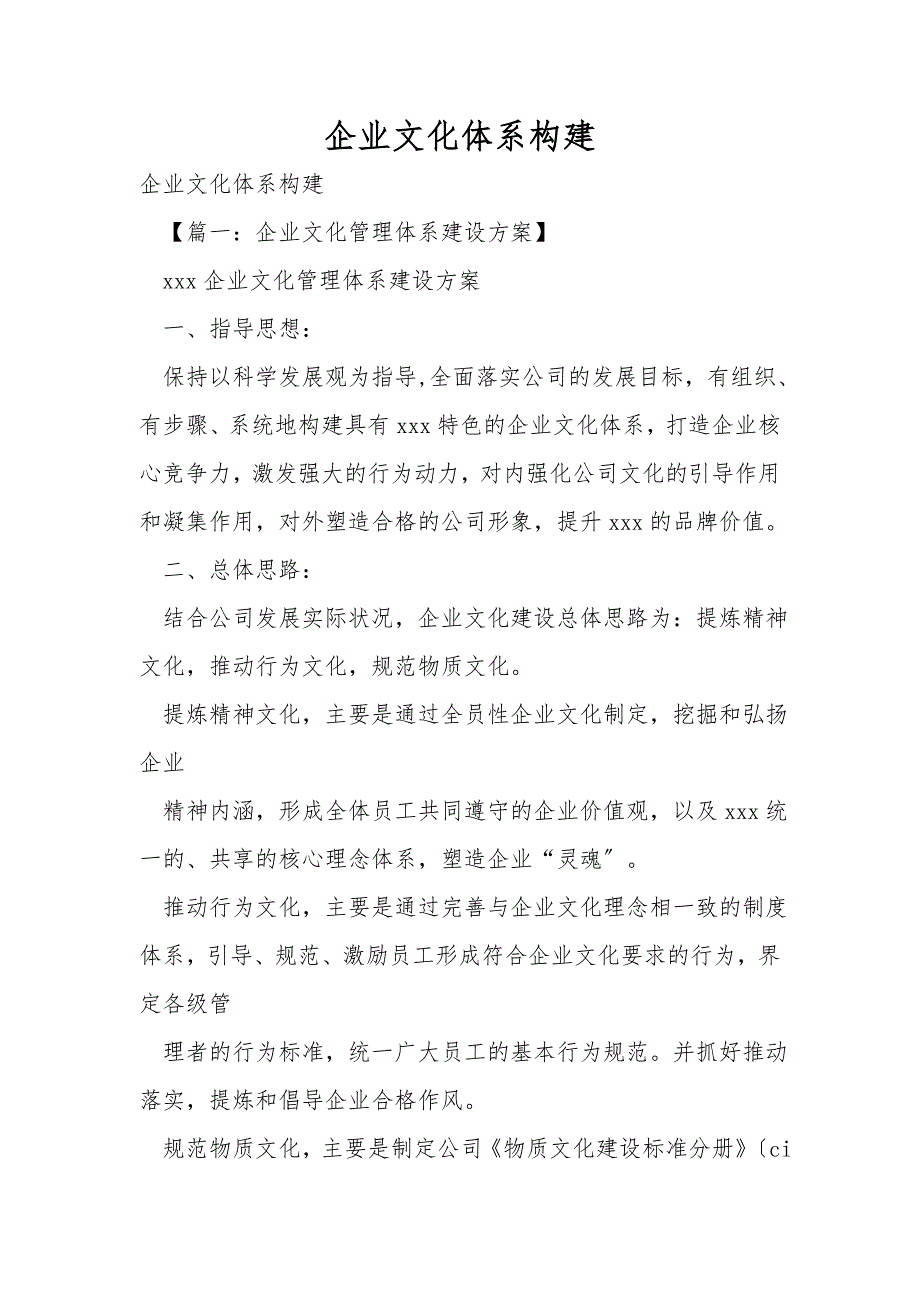 企业文化体系构建
企业文化体系构建
【篇一：企业文化管理体系建设方案】
xxx 企业文化管理体系建设方案
一、指导思想：
保持以科学发展观为指导,全面落实公司的发展目标，有组织、
有步骤、系统地构建具有 xxx 特色的企业文化体系，打造企业核
心竞争力，激发强大的行为动力，对内强化公司文化的引导作用
和凝集作用，对外塑造合格的公司形象，提升 xxx 的品牌价值。
二、总体思路：
结合公司发展实际状况，企业文化建设总体思路为：提炼精神
文化，推动行为文化，规范物质文化。
提炼精神文化，主要是通过全员性企业文化制定，挖掘和弘扬
企业
精神内涵，形成全体员工共同遵守的企业价值观，以及 xxx 统
一的、共享的核心理念体系，塑造企业“灵魂〞。
推动行为文化，主要是通过完善与企业文化理念相一致的制度
体系，引导、规范、激励员工形成符合企业文化要求的行为，界
定各级管
理者的行为标准，统一广大员工的基本行为规范。并抓好推动
落实，提炼和倡导企业合格作风。
规范物质文化，主要是制定公司《物质文化建设标准分册》〔ci